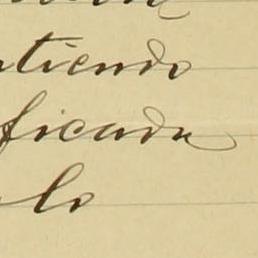 ntiendo
ficada
lo